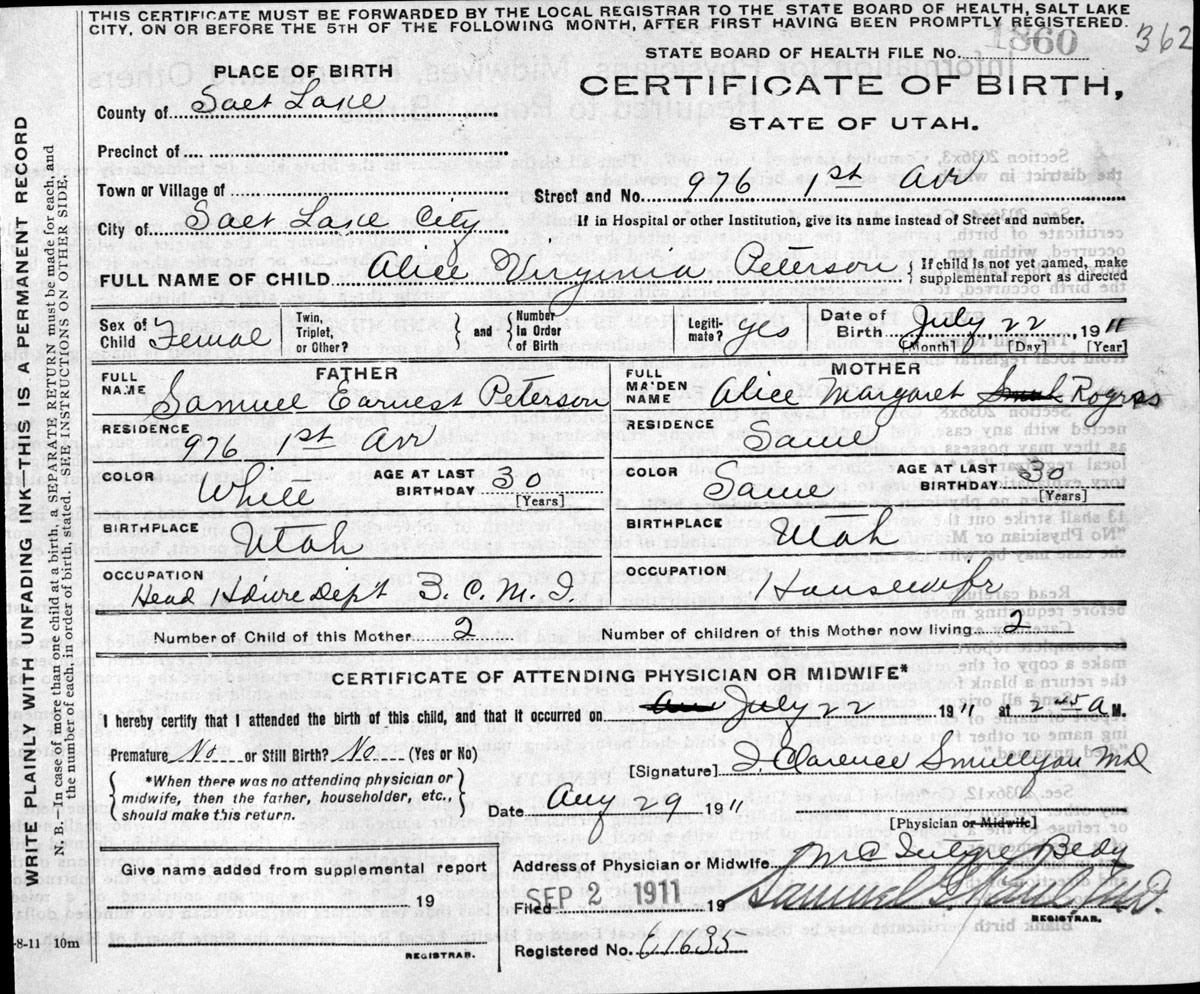 THIS CERTIFICATE MUST BE FORWARDED BY THE LOCAL REGISTRAR TO THE STATE BOARD OF HEALTH, SALT LAKE
CITY, ON OR BEFORE THE 5TH OF THE FOLLOWING MONTH, AFTER FIRST HAVING BEEN PROMPTLY REGISTERED.
362
STATE BOARD OF HEALTH FILE No. 1860
PLACE OF BIRTH
CERTIFICATE OF BIRTH,
STATE OF UTAH.
County of Salt Lake
Precinct of
Town or Village of
Street and No. 976 1st Ave
City of Salt Lake City
If in Hospital or other Institution, give its name instead of Street and number.
FULL NAME OF CHILD Alice Virginia Peterson { If child is not yet named, make supplemental report as directed
Sex of Child Female Twin, Triplet, or Other? } and { Number in Order of Birth Legitimate? yes Date of Birth July 22 1911
[Month] [Day] [Year]
FATHER
MOTHER
FULL NAME Samuel Earnest Peterson
FULL MAIDEN NAME Alice Margaret Rogers
RESIDENCE 976 1st Ave
RESIDENCE Same
COLOR White AGE AT LAST BIRTHDAY 30 [Years]
COLOR Same AGE AT LAST BIRTHDAY 30 [Years]
BIRTHPLACE Utah
BIRTHPLACE Utah
OCCUPATION Head Hdwre Dep't Z. C. M. I.
OCCUPATION Housewife
Number of Child of this Mother 2 Number of children of this Mother now living 2
CERTIFICATE OF ATTENDING PHYSICIAN OR MIDWIFE*
I hereby certify that I attended the birth of this child, and that it occurred on July 22 1911 at 2 45 A M.
Premature No or Still Birth? No (Yes or No)
[Signature] Clarence M.D
{ *When there was no attending physician or midwife, then the father, householder, etc., should make this return. }
Date Aug 29 1911
[Physician or Midwife]
Give name added from supplemental report
19
REGISTRAR.
Address of Physician or Midwife
Filed SEP 2 1911 19 Samuel G. Paul, M.D.
REGISTRAR.
Registered No. C1635
-8-11 10m
WRITE PLAINLY WITH UNFADING INK-THIS IS A PERMANENT RECORD
N. B.—In case of more than one child at a birth, a SEPARATE RETURN must be made for each, and
the number of each, in order of birth, stated. SEE INSTRUCTIONS ON OTHER SIDE.